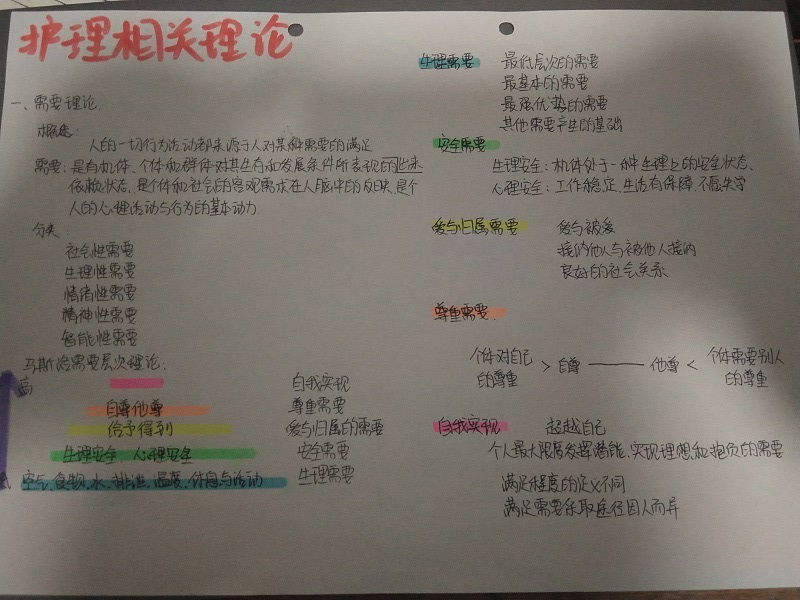 护理相关理论
一、需要理论.
概念:
人的一切行为活动都来源于人对某种需要的满足
需要:是有机体、个体和群体对其生存和发展条件所表现的
依赖状态,是个体和社会的客观需求在人脑中的反映,是个
人的心理活动与行为的基本动力
分类
社会性需要
生理性需要
情绪性需要
精神性需要
智能性需要
马斯洛需要层次理论:
高
自我实现
自尊他尊 尊重需要
给予得到 爱与归属的需要
生理安全 心理安全 安全需要
空气,食物,水,排泄,温度,休息与活动 生理需要
生理需要 最低层次的需要
最基本的需要
最强优势的需要
其他需要产生的基础
安全需要
生理安全:机体处于一种生理上的安全状态.
心理安全:工作稳定,生活有保障,不愿失学
爱与归属需要 爱与被爱
接纳他人与被他人接纳
良好的社会关系
尊重需要.
个体对自己的尊重 > 自尊 —— 他尊 < 个体需要别人的尊重
自我实现 超越自己
个人最大限度发挥潜能,实现理想和抱负的需要
满足程度的定义不同
满足需要采取途径因人而异